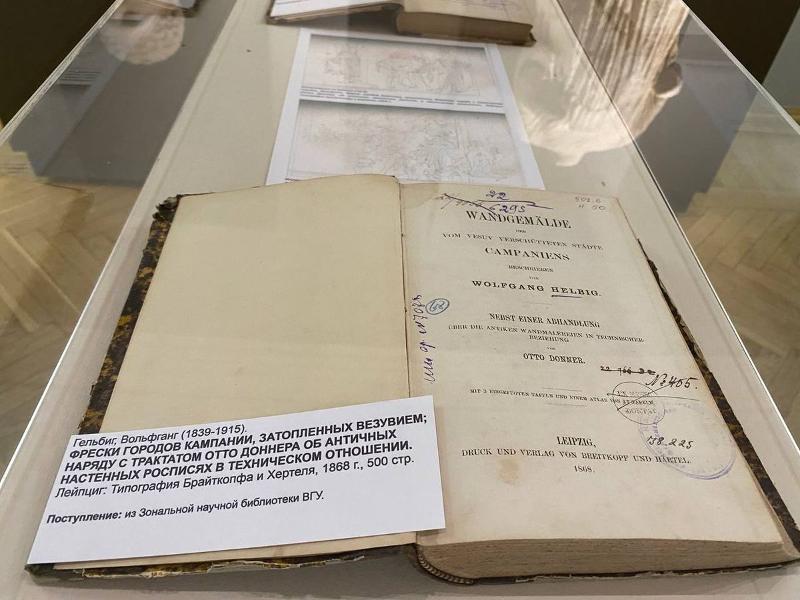 22
6295
WANDGEMÄLDE
DER
VOM VESUV VERSCHÜTTETEN STÄDTE
CAMPANIENS
BESCHRIEBEN
VON
WOLFGANG HELBIG.
NEBST EINER ABHANDLUNG
ÜBER DIE ANTIKEN WANDMALEREIEN IN TECHNISCHER
BEZIEHUNG
VON
OTTO DONNER.
№405.
MIT 3 EINGEFÜGTEN TAFELN UND EINEM ATLAS VON
LEIPZIG,
DRUCK UND VERLAG VON BREITKOPF UND HÄRTEL.
1868.
Гельбиг, Вольфганг (1839-1915).
ФРЕСКИ ГОРОДОВ КАМПАНИИ, ЗАТОПЛЕННЫХ ВЕЗУВИЕМ;
НАРЯДУ С ТРАКТАТОМ ОТТО ДОННЕРА ОБ АНТИЧНЫХ
НАСТЕННЫХ РОСПИСЯХ В ТЕХНИЧЕСКОМ ОТНОШЕНИИ.
Лейпциг: Типография Брайткопфа и Хертеля, 1868 г., 500 стр.
Поступление: из Зональной научной библиотеки ВГУ.